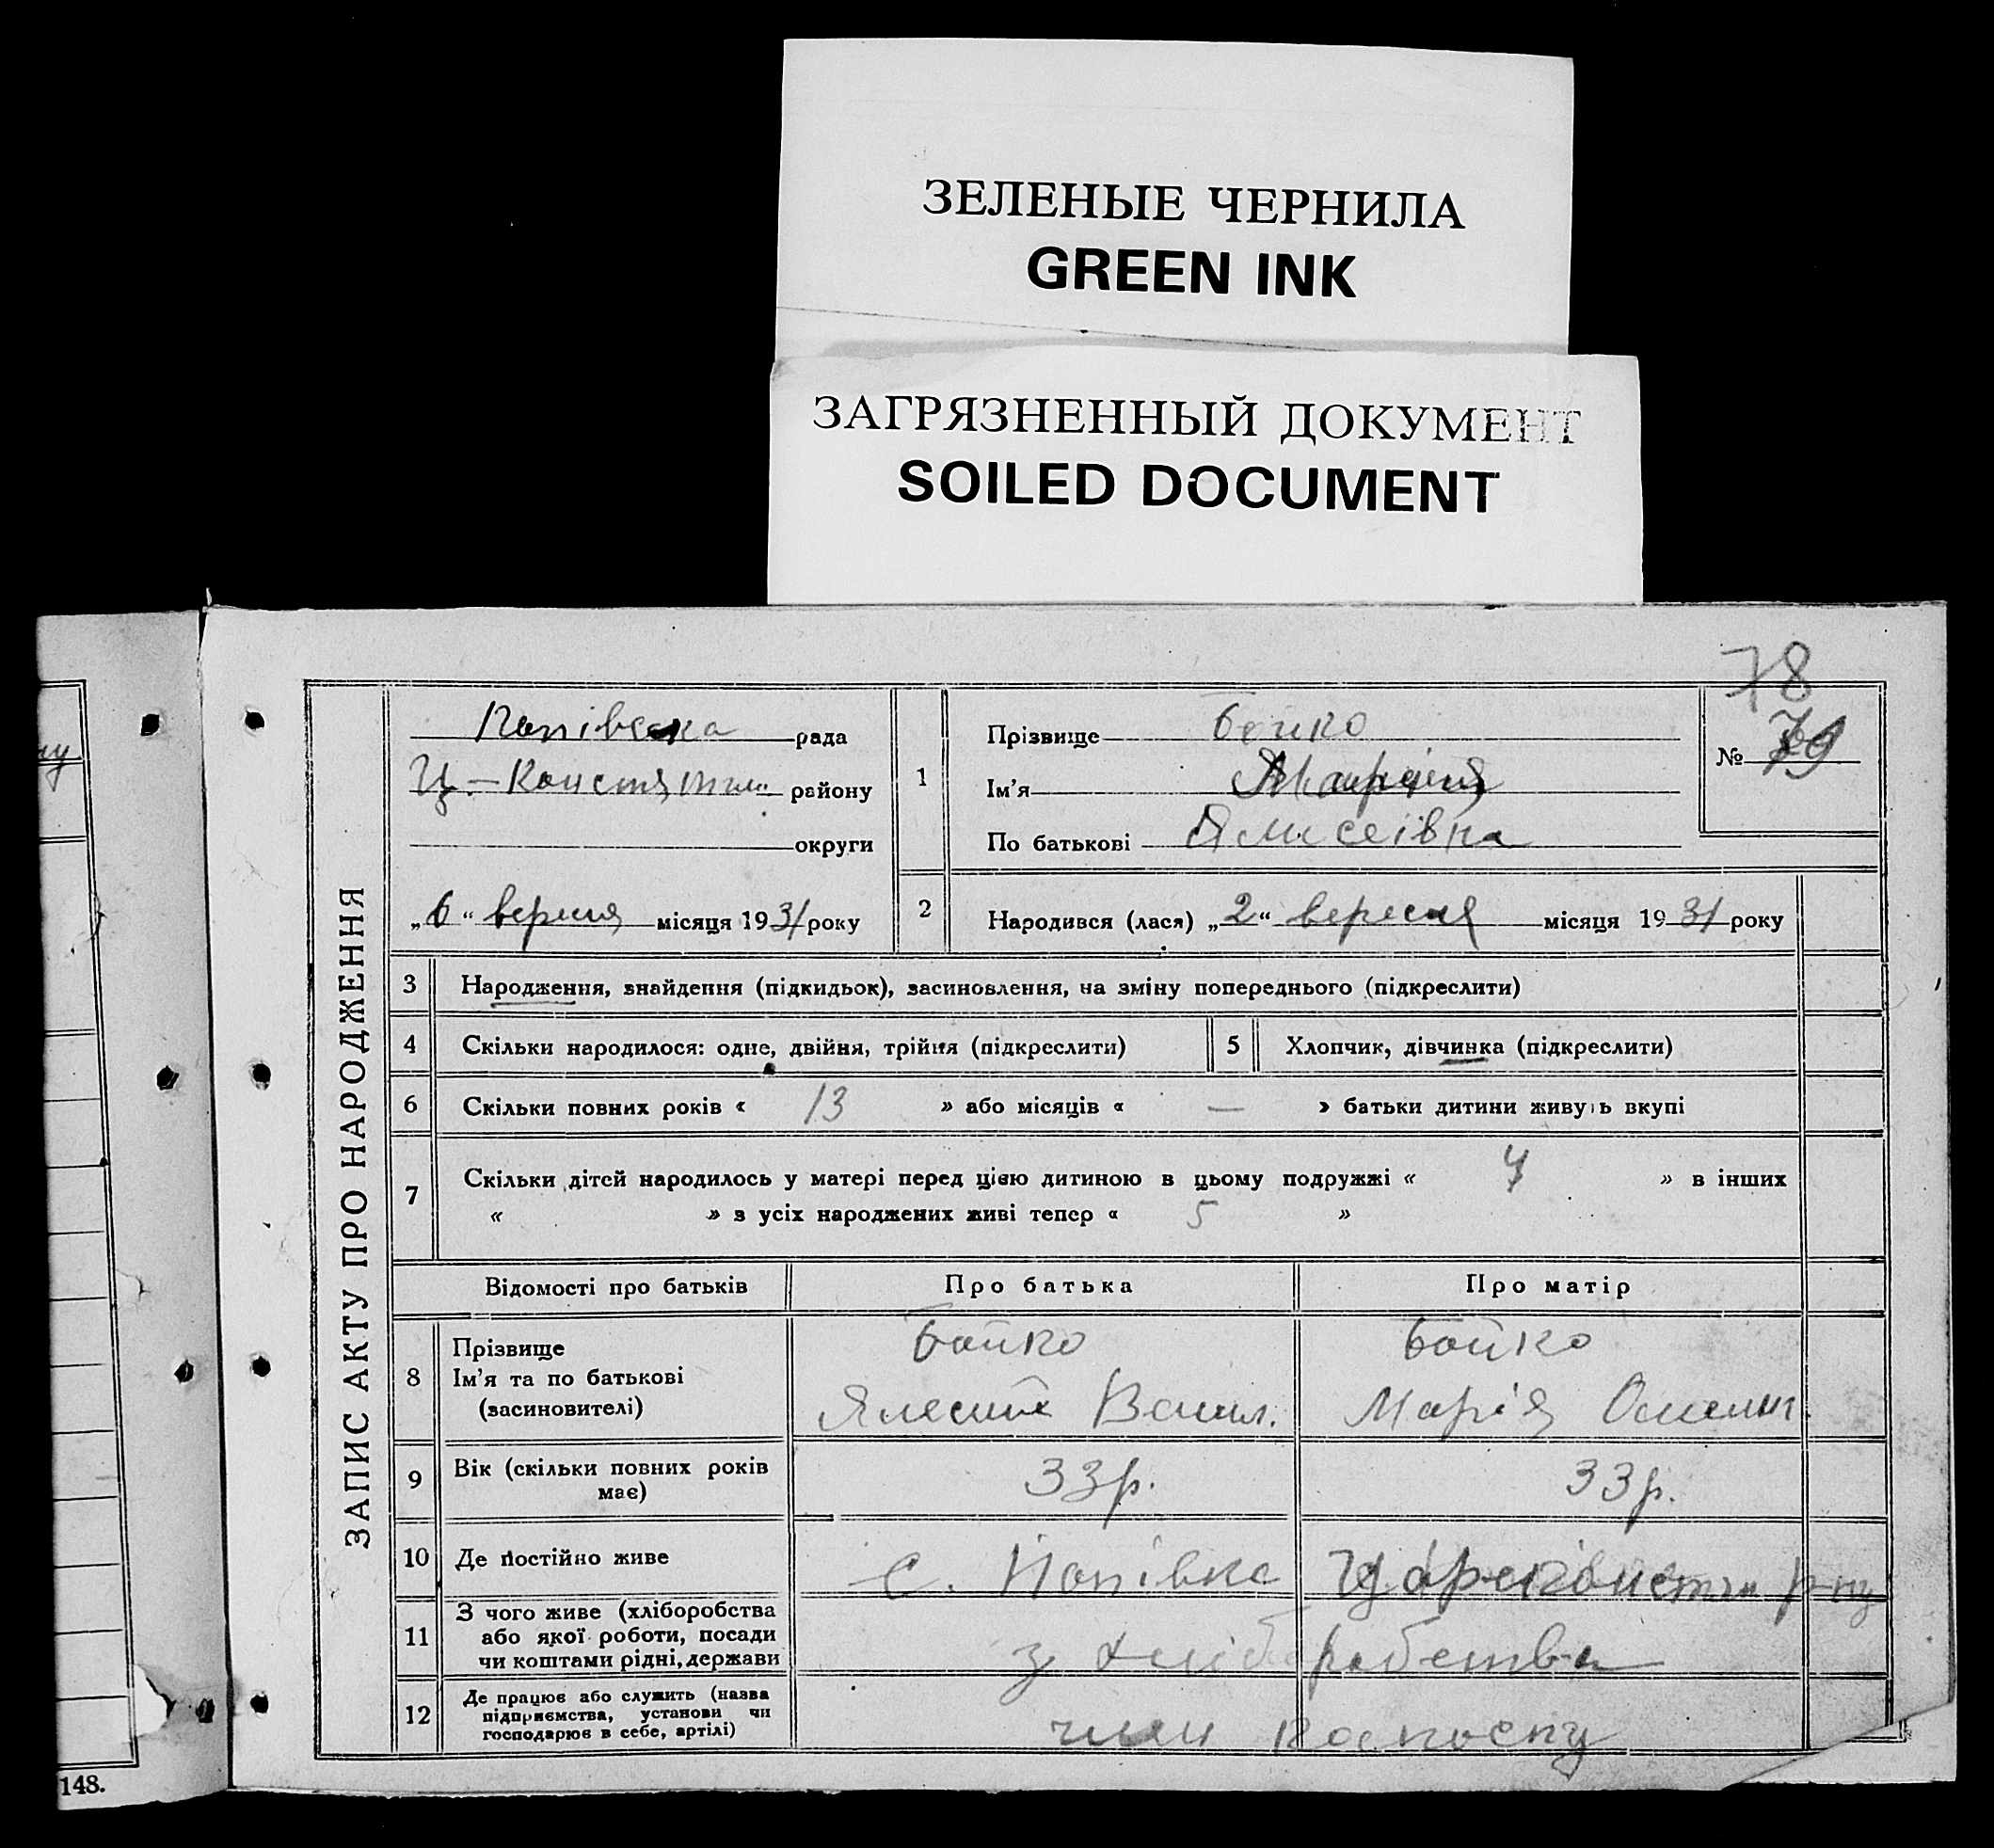 ЗЕЛЕНЫЕ ЧЕРНИЛА
GREEN INK
ЗАГРЯЗНЕННЫЙ ДОКУМЕНТ
SOILED DOCUMENT
78
ЗАПИС АКТУ ПРО НАРОДЖЕННЯ
Попівська рада
району
округи
„6“ вересня місяця 1931 року
1
Прізвище Бойко
Ім'я
По батькові
№ 79
2
Народився (лася) „2“ вересня місяця 1931 року
3 Народження, знайдення (підкидьок), засиновлення, на зміну попереднього (підкреслити)
4 Скільки народилося: одне, двійня, трійня (підкреслити)
5 Хлопчик, дівчинка (підкреслити)
6 Скільки повних років « 13 » або місяців « — » батьки дитини живуть вкупі
7 Скільки дітей народилось у матері перед цією дитиною в цьому подружжі « » в інших
« » з усіх народжених живі тепер « 5 »
Відомості про батьків Про батька Про матір
8 Прізвище
Ім'я та по батькові
(засиновителі)
Бойко
Васил.
Бойко
Марія
9 Вік (скільки повних років
має)
33 р. 33 р.
10 Де постійно живе с. Попівка
11 З чого живе (хліборобства
або якої роботи, посади
чи коштами рідні, держави
з хліборобства
12 Де працює або служить (назва
підприємства, установи чи
господарює в себе, артілі)
член колгоспу
148.